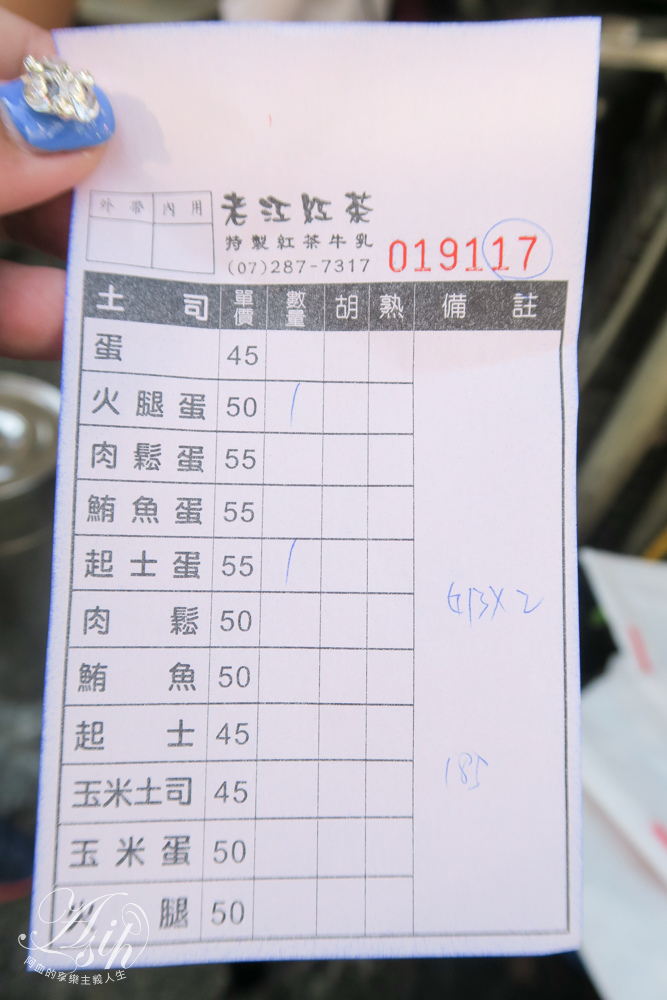 外帶 內用
老江紅茶
特製紅茶牛乳
(07)287-7317
019117
土司 單價 數量 胡 熟 備註
蛋 45
火腿蛋 50 /
肉鬆蛋 55
鮪魚蛋 55
起士蛋 55 /
肉鬆 50
鮪魚 50
起士 45
玉米土司 45
玉米蛋 50
火腿 50
X 2
185
阿血的享樂主義人生